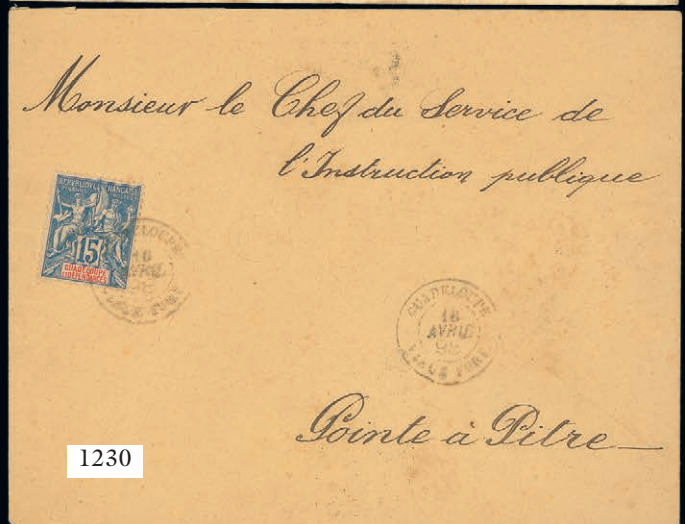 Monsieur le Chef du Service de
l'Instruction publique
REPUBLIQUE FRANCAISE
15
GUADELOUPE
ET DEPENDANCES
GUADELOUPE
AVRIL
GUADELOUPE
16
AVRIL
98
VIEUX FORT
Pointe à Pitre
1230